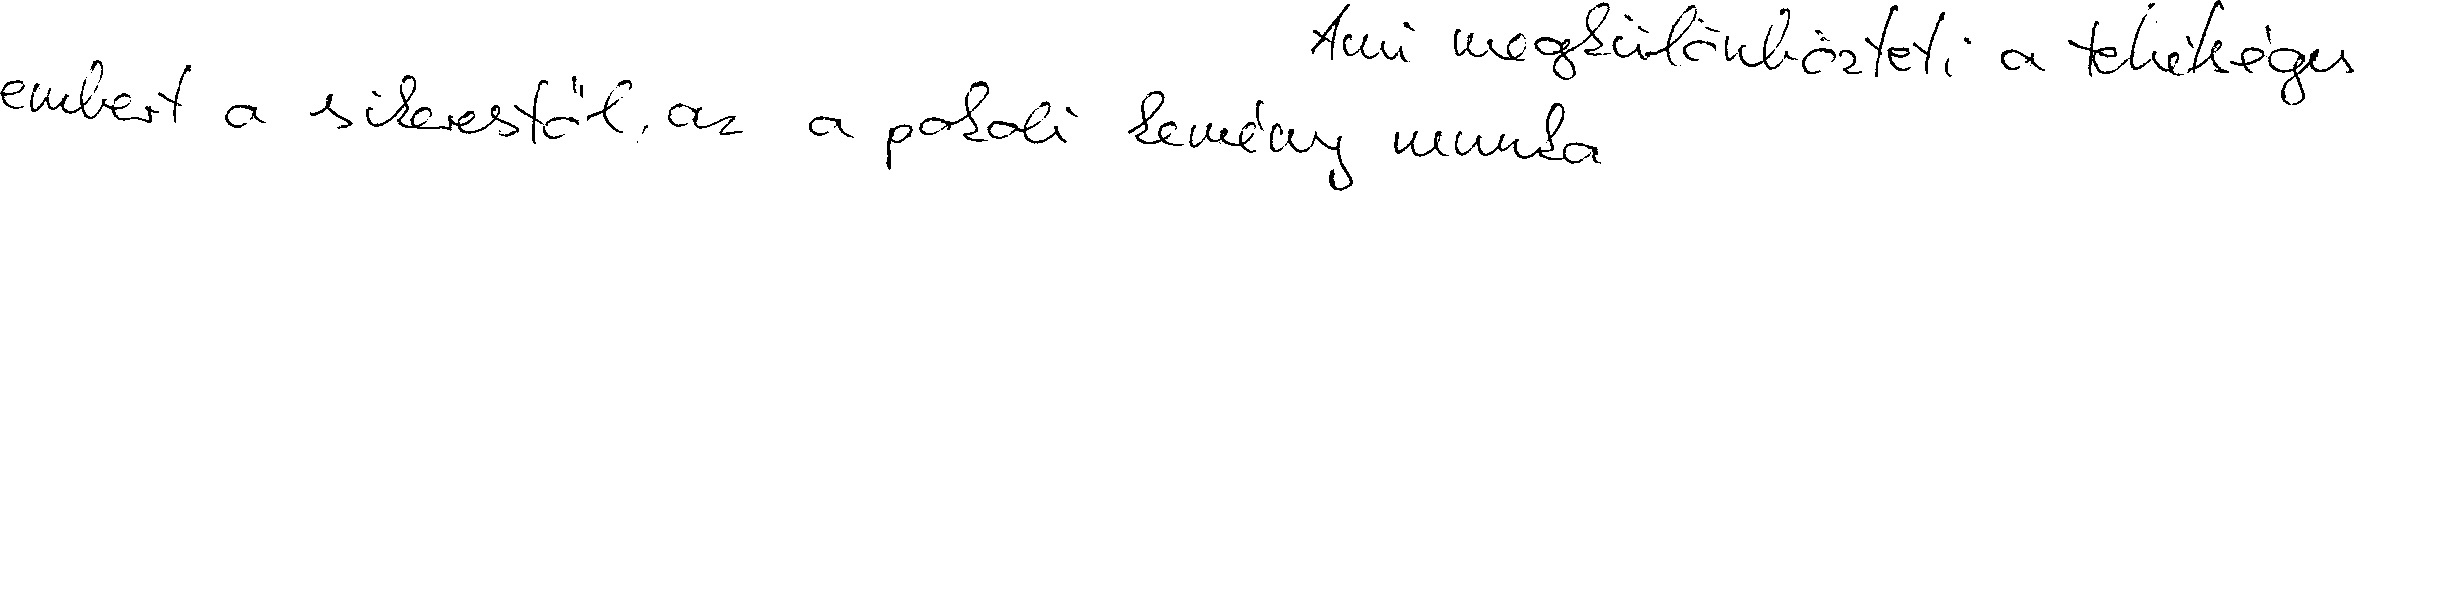 Ami megkülönbözteti a tehetséges
embert a sikerestől, az a pokoli kemény munka